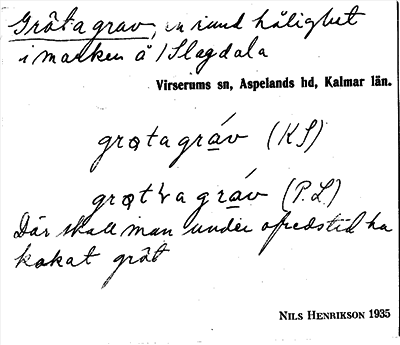 Gröta grav, en rund hålighet
i marken å / Slagdala
Virserums sn, Aspelands hd, Kalmar län.
grøtagráv (KS)
grøtɩagráv (P.L.)
Där skall man under ofredstid ha
kokat gröt
NILS HENRIKSON 1935